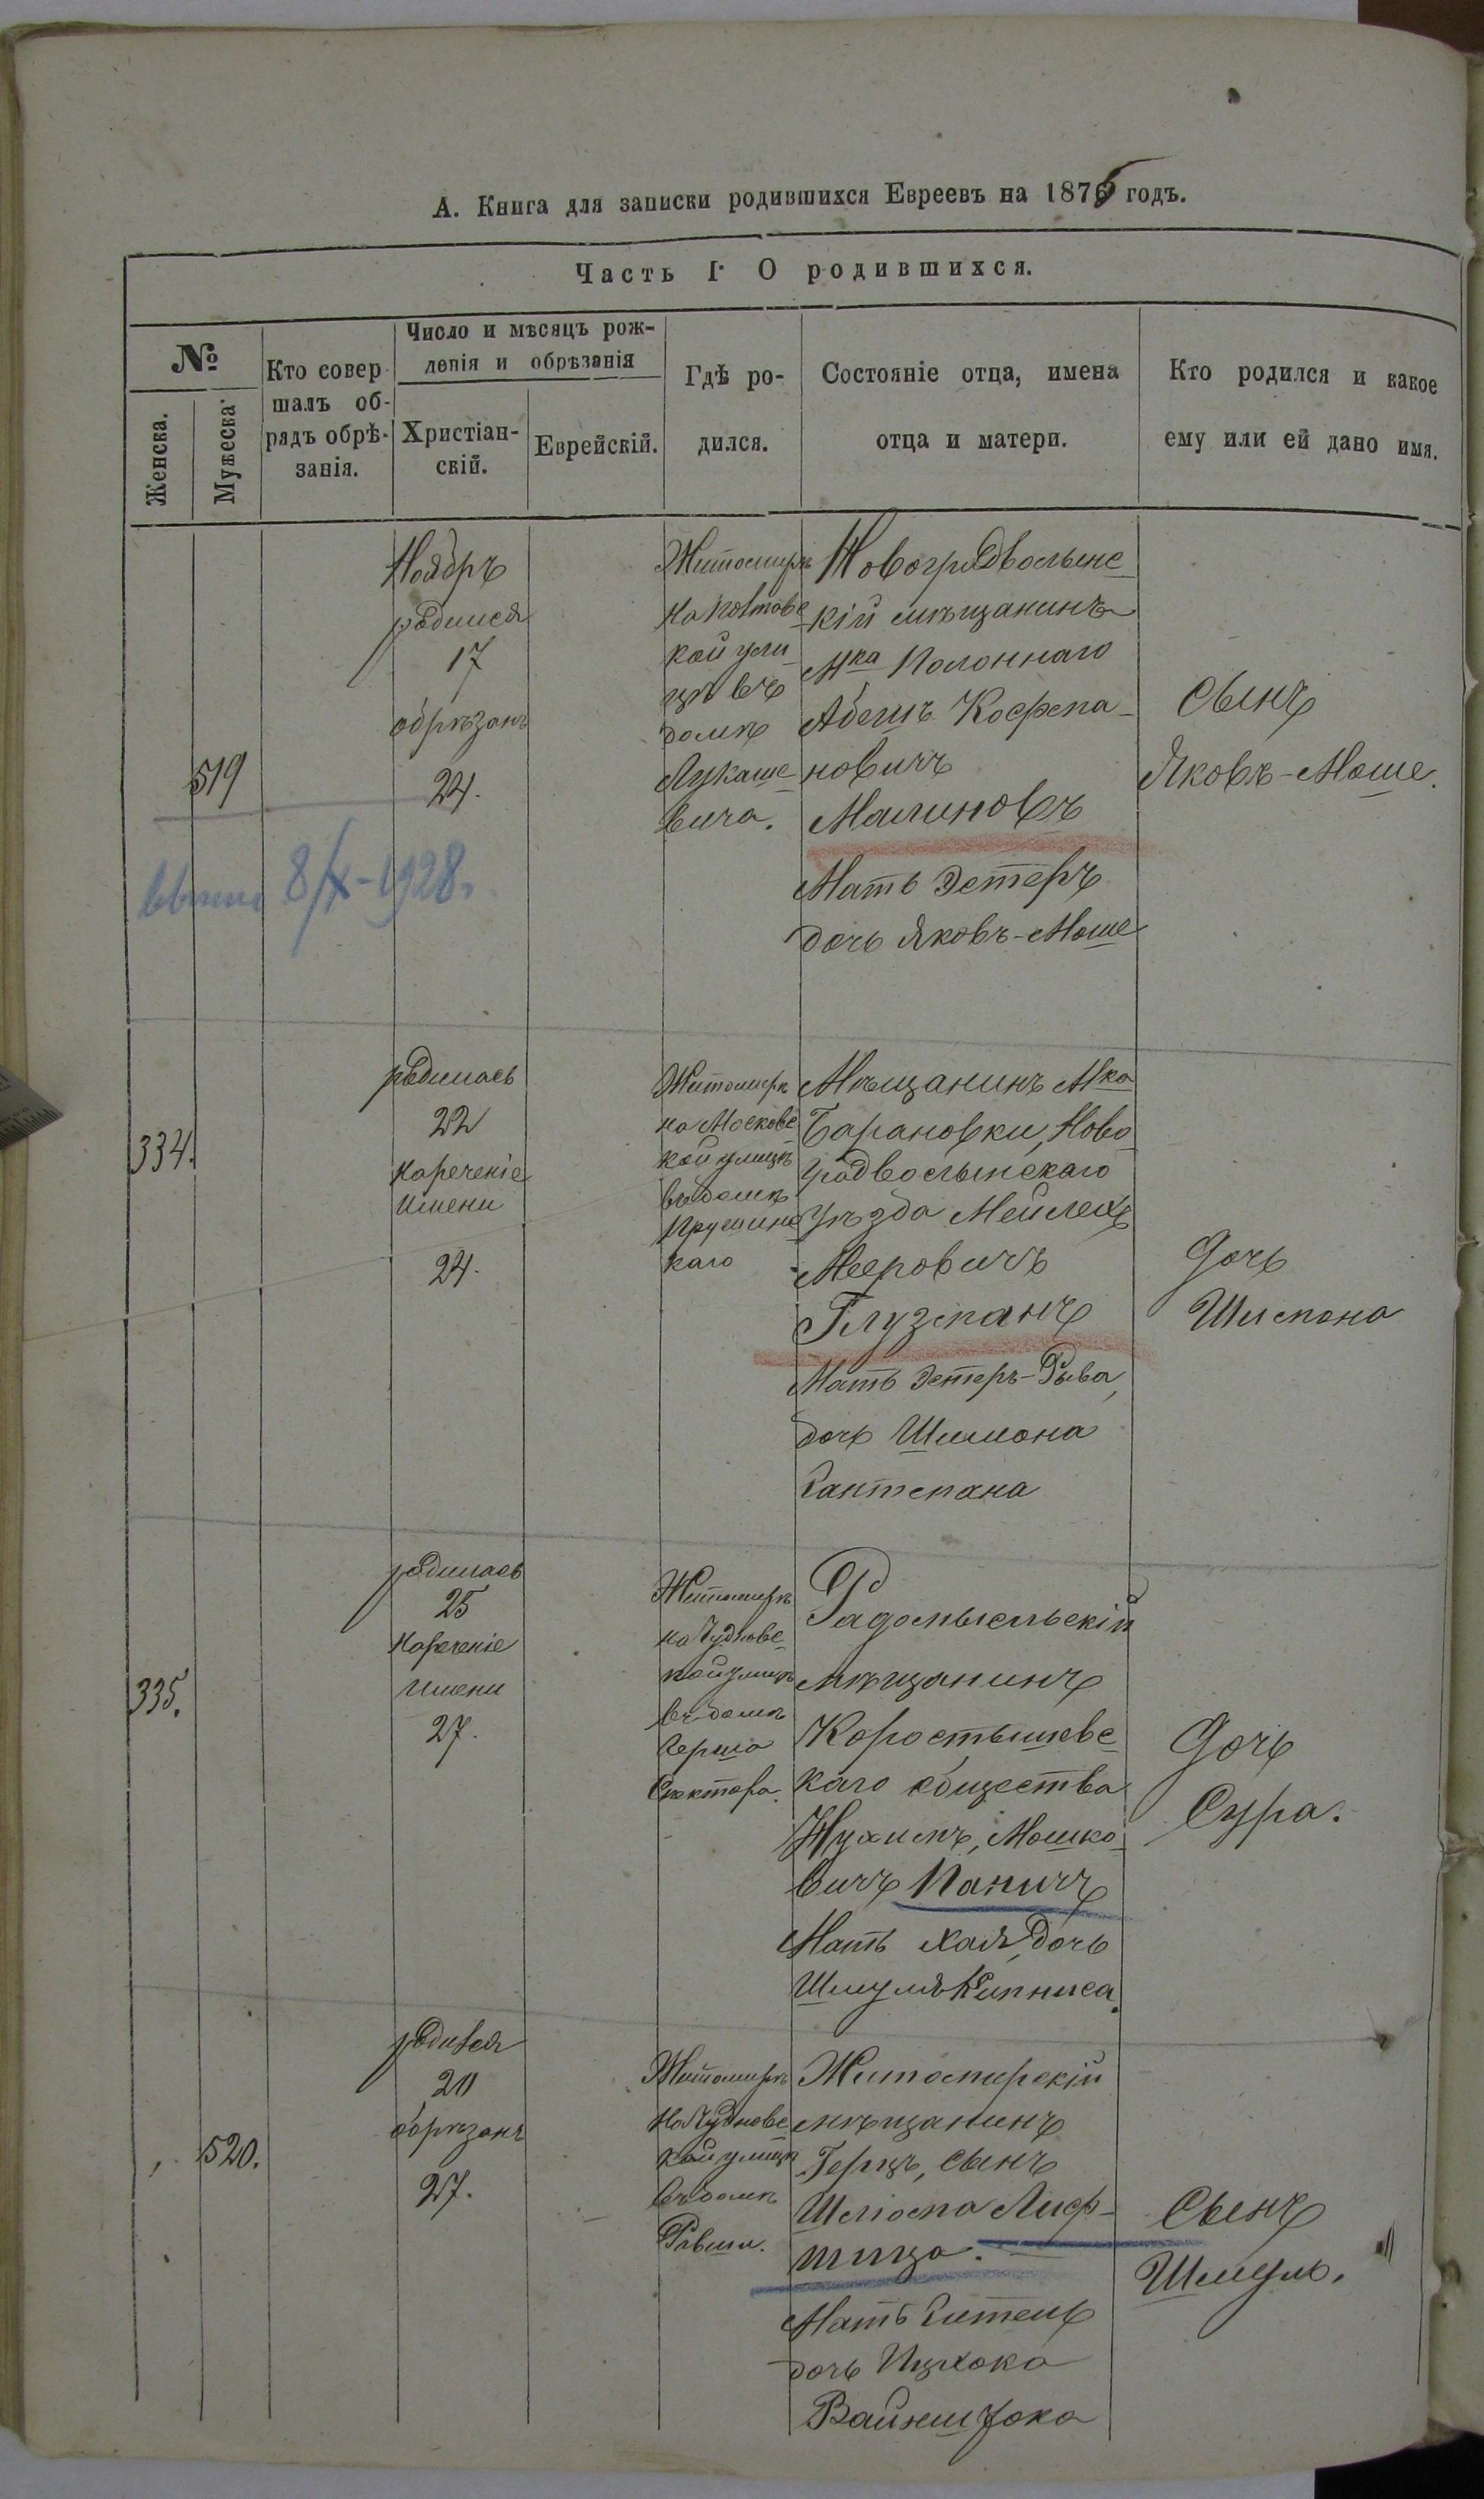 А. Книга для записки родившихся Евреевъ на 1876 годъ.
Часть I. О родившихся.
№
Женска.
Мужеска
Кто совер
шалъ об-
рядъ обрѣ-
занія.
Число и мѣсяцъ рож-
денія и обрѣзанія
Христіан-
скій.
Еврейскій.
Гдѣ ро-
дился.
Состояніе отца, имена
отца и матери.
Кто родился и какое
ему или ей дано имя.
519
8/X-1928.
Ноябрь
родился
17
обрѣзанъ
24.
Житомиръ
кой ули
цѣ въ
домѣ
Лукаше
вича.
Новоградволынс
кій мѣщанинъ
Мка Полоннаго
новичъ
Малиновъ
Мать Эстеръ
дочь Яковъ-Моше
Сынъ
Яковъ-Моше.
334.
родилась
22
Нареченіе
имени
24.
Житомиръ
на Московс
кой улицѣ
въ домѣ
каго
Мѣщанинъ Мка
Барановки, Ново
градволынскаго
уѣзда Мейлехъ
Мееровичъ
Глузманъ
Мать Эстеръ-Рыва,
дочь Шимона
Гантмана
Дочь
335.
родилась
25
Нареченіе
имени
27.
Житомиръ
на Чудновс-
кой улицѣ
въ домѣ
Герша
Спектора.
Радомысльскій
мѣщанинъ
Коростышевс
каго общества
Нухимъ, Мошко
вичъ Паничъ
Мать Хая, дочь
Шмуля Кипниса.
Дочь
Сура.
520.
родился
20
обрѣзанъ
27.
Житомиръ
на Чудновс
кой улицѣ
въ домѣ
Житомирскій
мѣщанинъ
Герцъ, сынъ
Шліома Лиф-
шица.
Мать
дочь Ицхока
Вайнштока
Сынъ
Шмуль.